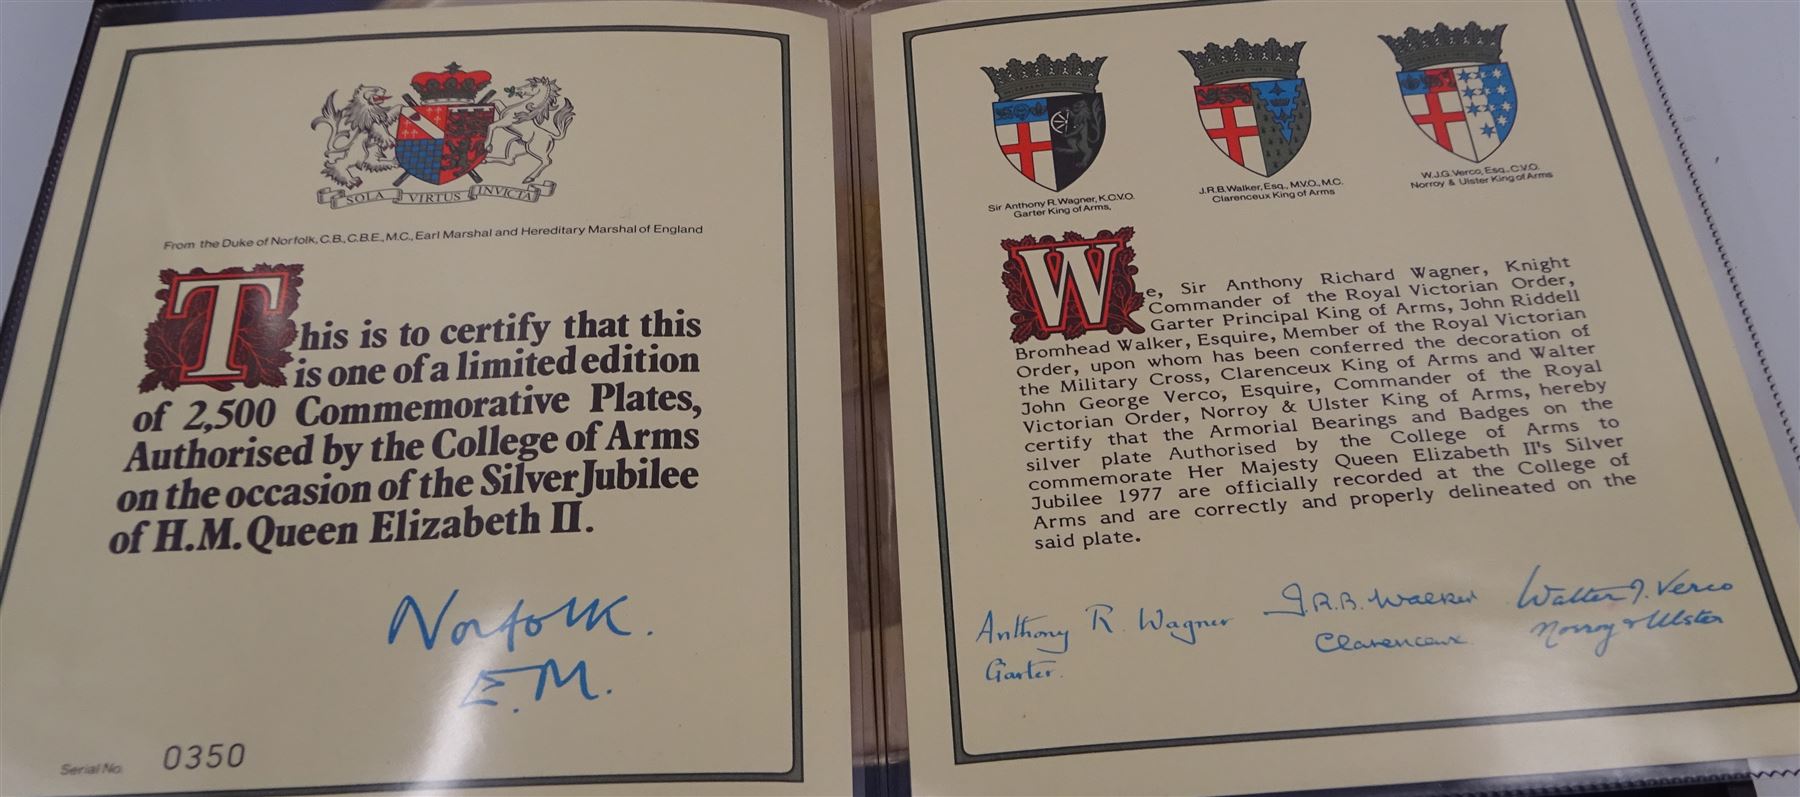 SOLA VIRTUS INVICTA
From the Duke of Norfolk, C.B., C.B.E., M.C., Earl Marshal and Hereditary Marshal of England
This is to certify that this
is one of a limited edition
of 2,500 Commemorative Plates,
Authorised by the College of Arms
on the occasion of the Silver Jubilee
of H.M. Queen Elizabeth II.
Norfolk.
E.M.
Serial No. 0350
Sir Anthony R. Wagner, K.C.V.O.
Garter King of Arms,
J.R.B. Walker, Esq., M.V.O., M.C.
Clarenceux King of Arms
W.J.G. Verco, Esq., C.V.O.
Norroy & Ulster King of Arms
We, Sir Anthony Richard Wagner, Knight
Commander of the Royal Victorian Order,
Garter Principal King of Arms, John Riddell
Bromhead Walker, Esquire, Member of the Royal Victorian
Order, upon whom has been conferred the decoration of
the Military Cross, Clarenceux King of Arms and Walter
John George Verco, Esquire, Commander of the Royal
Victorian Order, Norroy & Ulster King of Arms, hereby
certify that the Armorial Bearings and Badges on the
silver plate Authorised by the College of Arms to
commemorate Her Majesty Queen Elizabeth II's Silver
Jubilee 1977 are officially recorded at the College of
Arms and are correctly and properly delineated on the
said plate.
Anthony R. Wagner
Garter.
J.R.B. Walker
Clarenceux.
Walter J. Verco
Norroy & Ulster